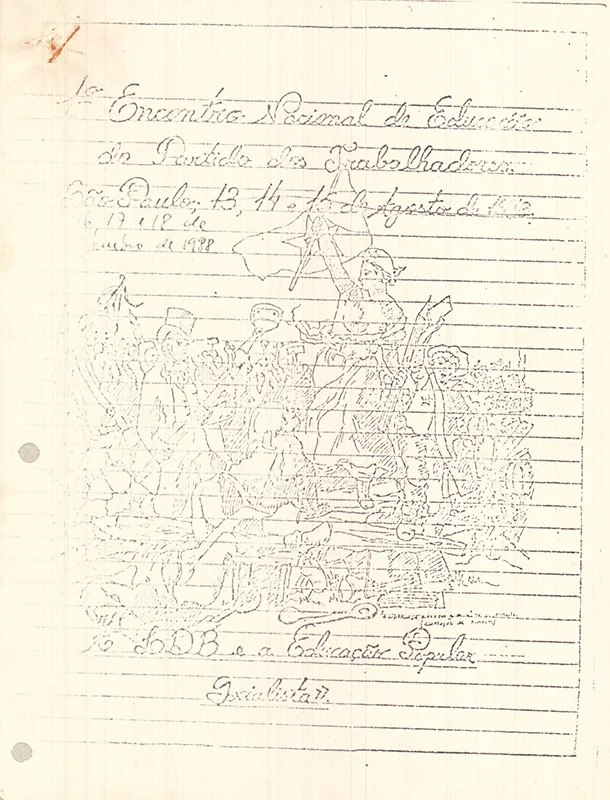 1º Encontro Nacional de Educação
do Partido dos Trabalhadores
São Paulo, 13, 14 e 15 de Agosto de
16, 17 e 18 de
junho de 1988
"A LDB e a Educação Popular
Socialista".